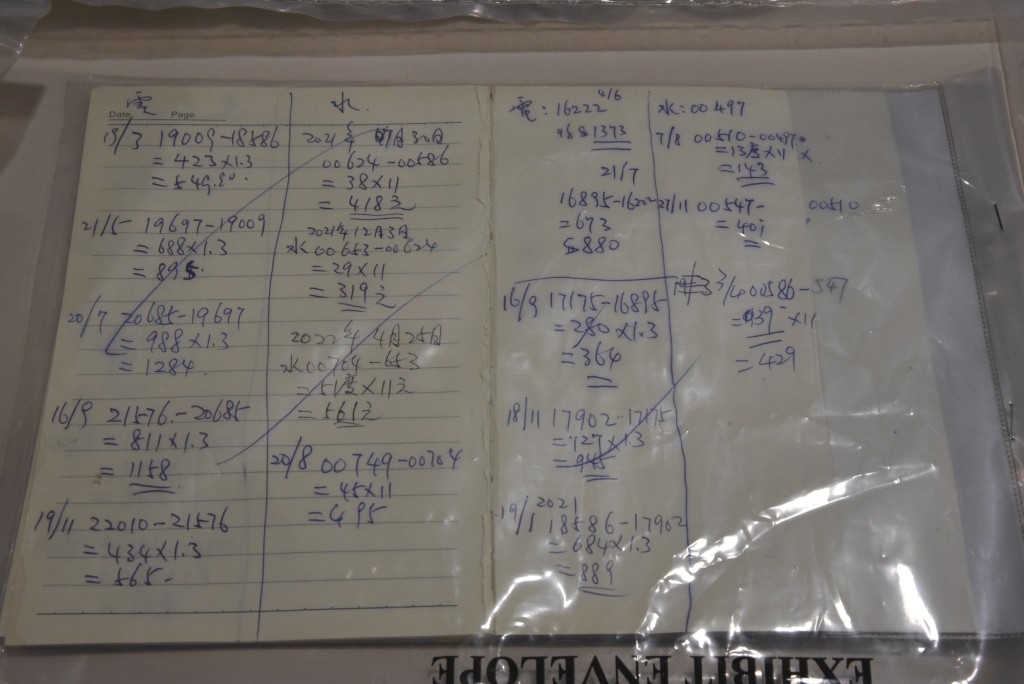 電
Date. Page
19/3 19009-18586
= 423×1.3
= 549.80.
21/5 19697-19009
= 688×1.3
= 895.
20/7 20685-19697
= 988×1.3
= 1284.
16/9 21576.-20685
= 811×1.3
= 1158
19/11 22010-21576
= 434×1.3
= 565-
水.
2021年 07月30日
00624-00586
= 38×11
= 418元
2021年12月3日
水00653-00624
= 29×11
= 319元
2022年 4月25日
水00704-653
= 51度×11元
= 561元
20/8 00749-00704
= 45×11
= 495
電: 16222 4/6
1373
21/7
16895-1622
= 673
880
16/9 17175-16895
= 280×1.3
= 364
18/11 17902-17175
= 727×1.3
= 945
19/1 2021 18586-17902
= 684×1.3
= 889
水: 00497
7/8 00510-00497
= 13度×11
= 143
27/11 00547- 00510
= 407
3/4 00586-547
= 039 ×11
= 429
EXHIBIT ENVELOPE